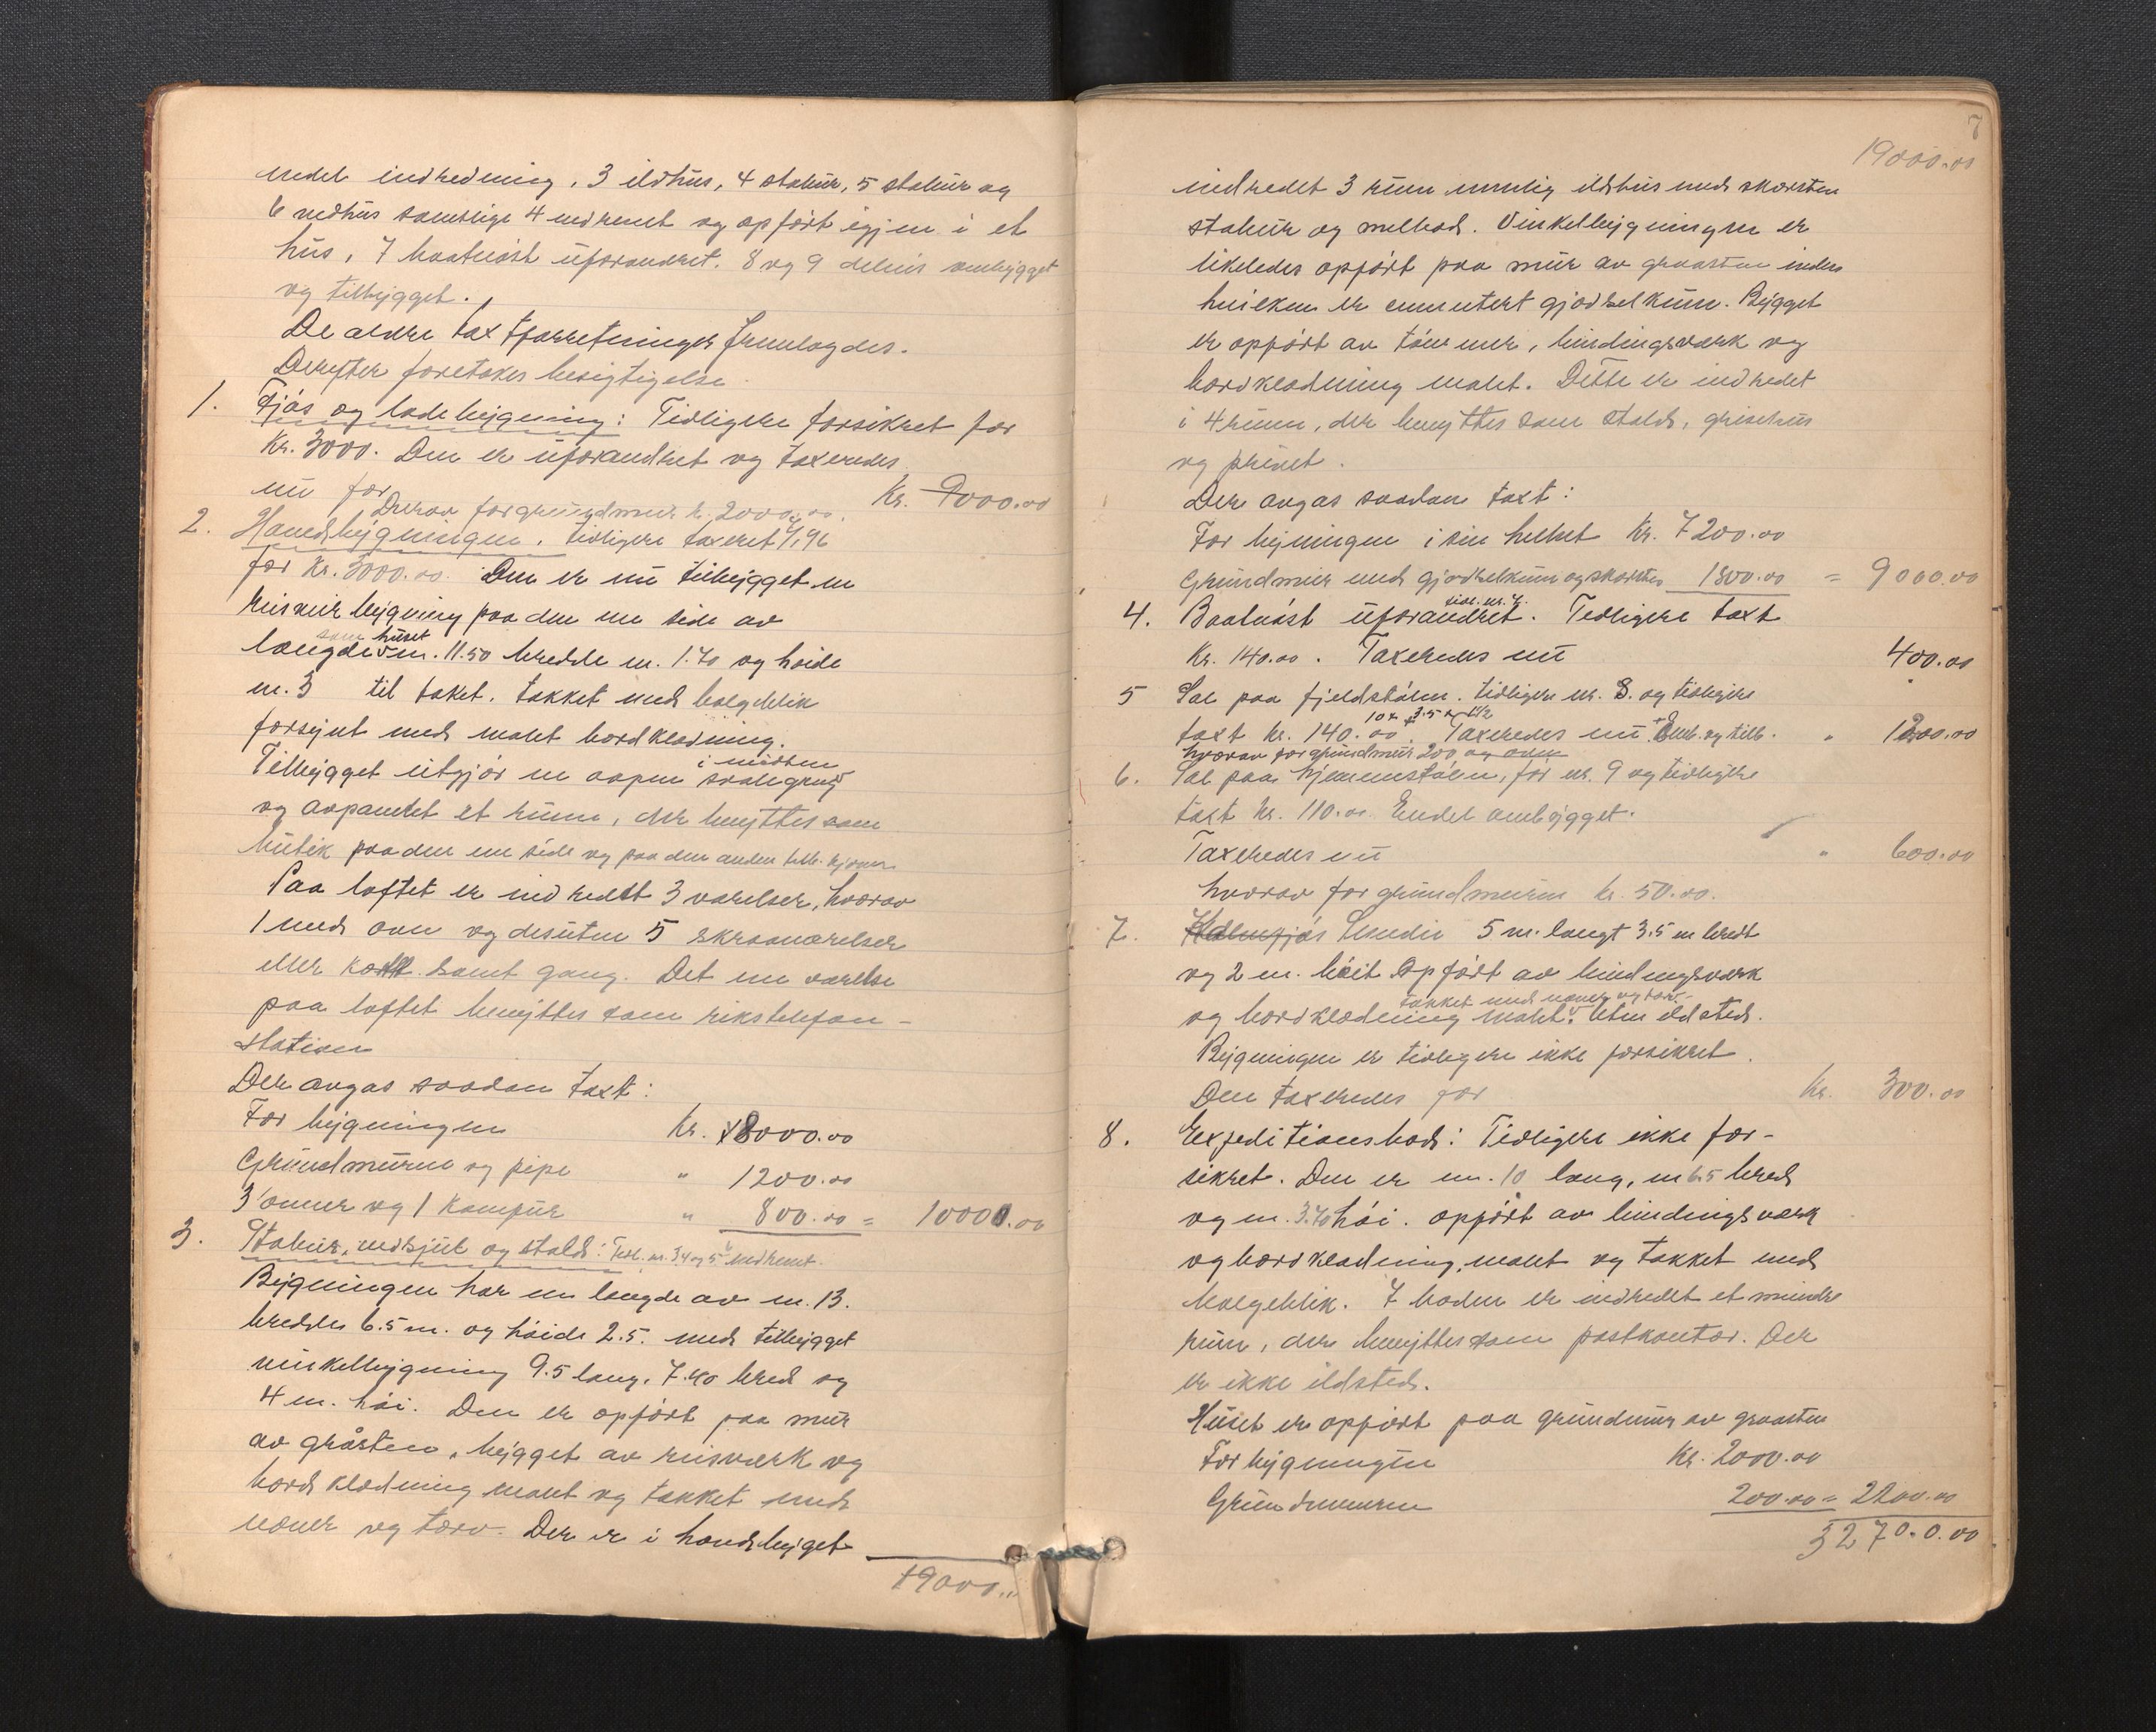 endel indredning, 3 ildhus, 4 stabur, 5 stabur og
6 vedhus samtlige 4 nedrevet og opført igjen i et
hus, 7 baatnøst uforandret. 8 og 9 delvis ombygget
og tilbygget.
De ældre taxtforretninger fremlagdes.
Derefter foretokes besigtigelse.
1. Fjøs og ladebygning: Tidligere forsikret for
Kr. 3000. Den er uforandret og taxeredes
nu for Kr. 9000.00
Derav for grundmur kr. 2000.00.
2. Hovedbygningen. tidligere taxeret 96
for Kr. 3000.00. Den er nu tilbygget en
bygning paa den ene side av
som huset
længde m. 11.50 bredde m. 1.70 og høide
m. 3 til taket. tækket med bølgeblik
forsynt med malt bordklædning.
i midten
Tilbygget utgjør en aapen svalegang
og avpanelet et rum, der benyttes som
butik paa den ene side og paa den anden
Paa loftet er indredet 3 værelser, hvorav
1 med ovn og desuten 5 skraaværelser
eller samt gang. Det ene værelse
paa loftet benyttes som rikstelefon-
station
Der avgas saadan taxt:
For bygningen Kr. 8000.00
Grundmuren og pipe " 1200.00
3 ovner og 1 komfur " 800.00 = 10000.00
3. Stabur, vedskjul og stald: Tidl. nr. 3 4 og 5 nedrevet.
Bygningen har en længde av m. 13.
bredde 6.5 m. og høide 2.5. med tilbygget
vinkelbygning 9.5 lang. 7.40 bred og
4 m. høi. Den er opført paa mur
av gråsten, bygget av reisverk og
bordklædning malt og tækket med
næver og torv. Der er i hovedbyget
19000..
7
19000.00
indredet 3 rum nemlig ildhus med skorsten
stabur og melbod. Vinkelbygningen er
likeledes opført paa mur av graasten inden
hvilken er cementert gjødselkum. Bygget
er opført av tømmer, bindingsværk og
bordklædning malt. Dette er indredet
i 4 rum, der benyttes som stald, grisehus
og privet.
Der avgas saadan taxt:
For bygningen i sin helhet Kr. 7200.00
Grundmur med gjødselkum og skorsten 1800.00 = 9000.00
tidl. nr. 7.
4. Baatnøst uforandret. Tidligere taxt
Kr. 140.00. Taxeredes nu 400.00
5 Sel paa fjeldstølen. tidligere nr. 8. og tidligere
taxt kr. 140.00. Taxeredes nu Omb. og tilb. " 1200.00
hvorav for grundmur 200 og ovn
6. Sel paa hjemmestølen, før nr. 9 og tidligere
taxt kr. 110.00 Endel ombygget.
Taxeredes nu " 600.00
hvorav for grundmuren kr. 50.00.
7. Smedie 5 m. langt 3.5 m bredt
og 2 m. høit Opført av bindingsværk
tækket med næver og torv.
og bordklædning malt. Uten ildsted.
Bygningen er tidligere ikke forsikret.
Den taxeredes for Kr. 300.00
8. Expeditionsbod: Tidligere ikke for-
sikret. Den er m. 10 lang, m 6.5 bred
og m. 3.70 høi. opført av bindingsværk
og bordklædning, malt og tækket med
bølgeblik. I boden er indredet et mindre
rum, der benyttes som postkontor. Der
er ikke ildsted.
Huset er opført paa grundmur av graasten
For bygningen Kr. 2000.00
Grundmuren 200.00 = 2200.00
32700.00